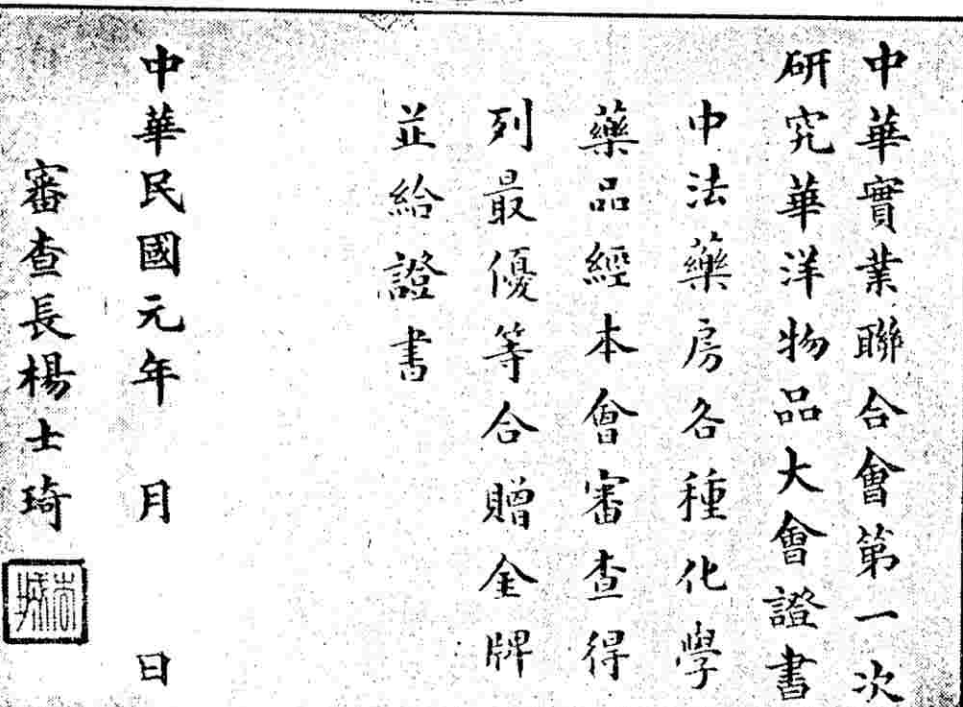 中華實業聯合會第一次
研究華洋物品大會證書
中法藥房各種化學
藥品經本會審查得
列最優等合贈金牌
並給證書
中華民國元年 月 日
審查長楊士琦